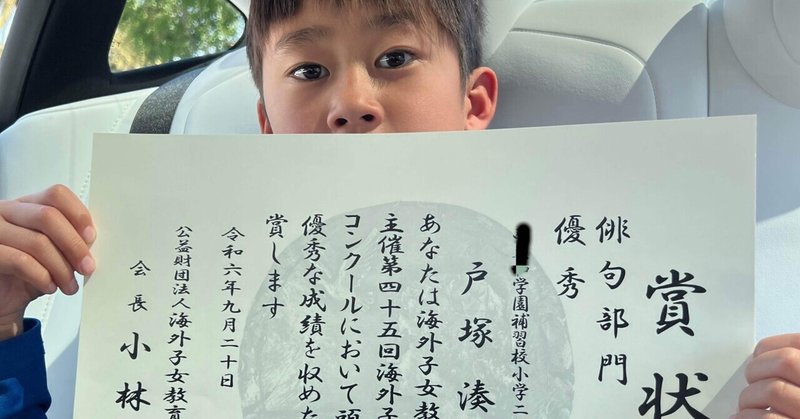 賞状
俳句部門
優秀
学園補習校小学二
戸塚湊
あなたは海外子女教
主催第四十五回海外子
コンクールにおいて頑
優秀な成績を収めた
賞します
令和六年九月二十日
公益財団法人海外子女教育
会長 小林